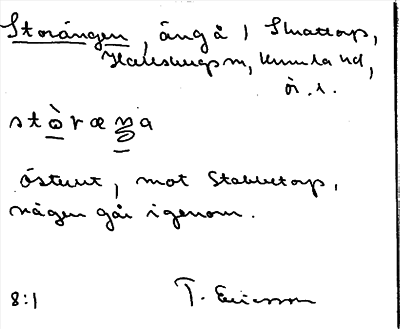 Storängen, äng å 1 Skattorp,
Hallsbergs sn, Kumla hd,
ör. l.
stò̱ræŋa
österut, mot Stabbetorp,
vägen går igenom.
8:1 T. Ericsson